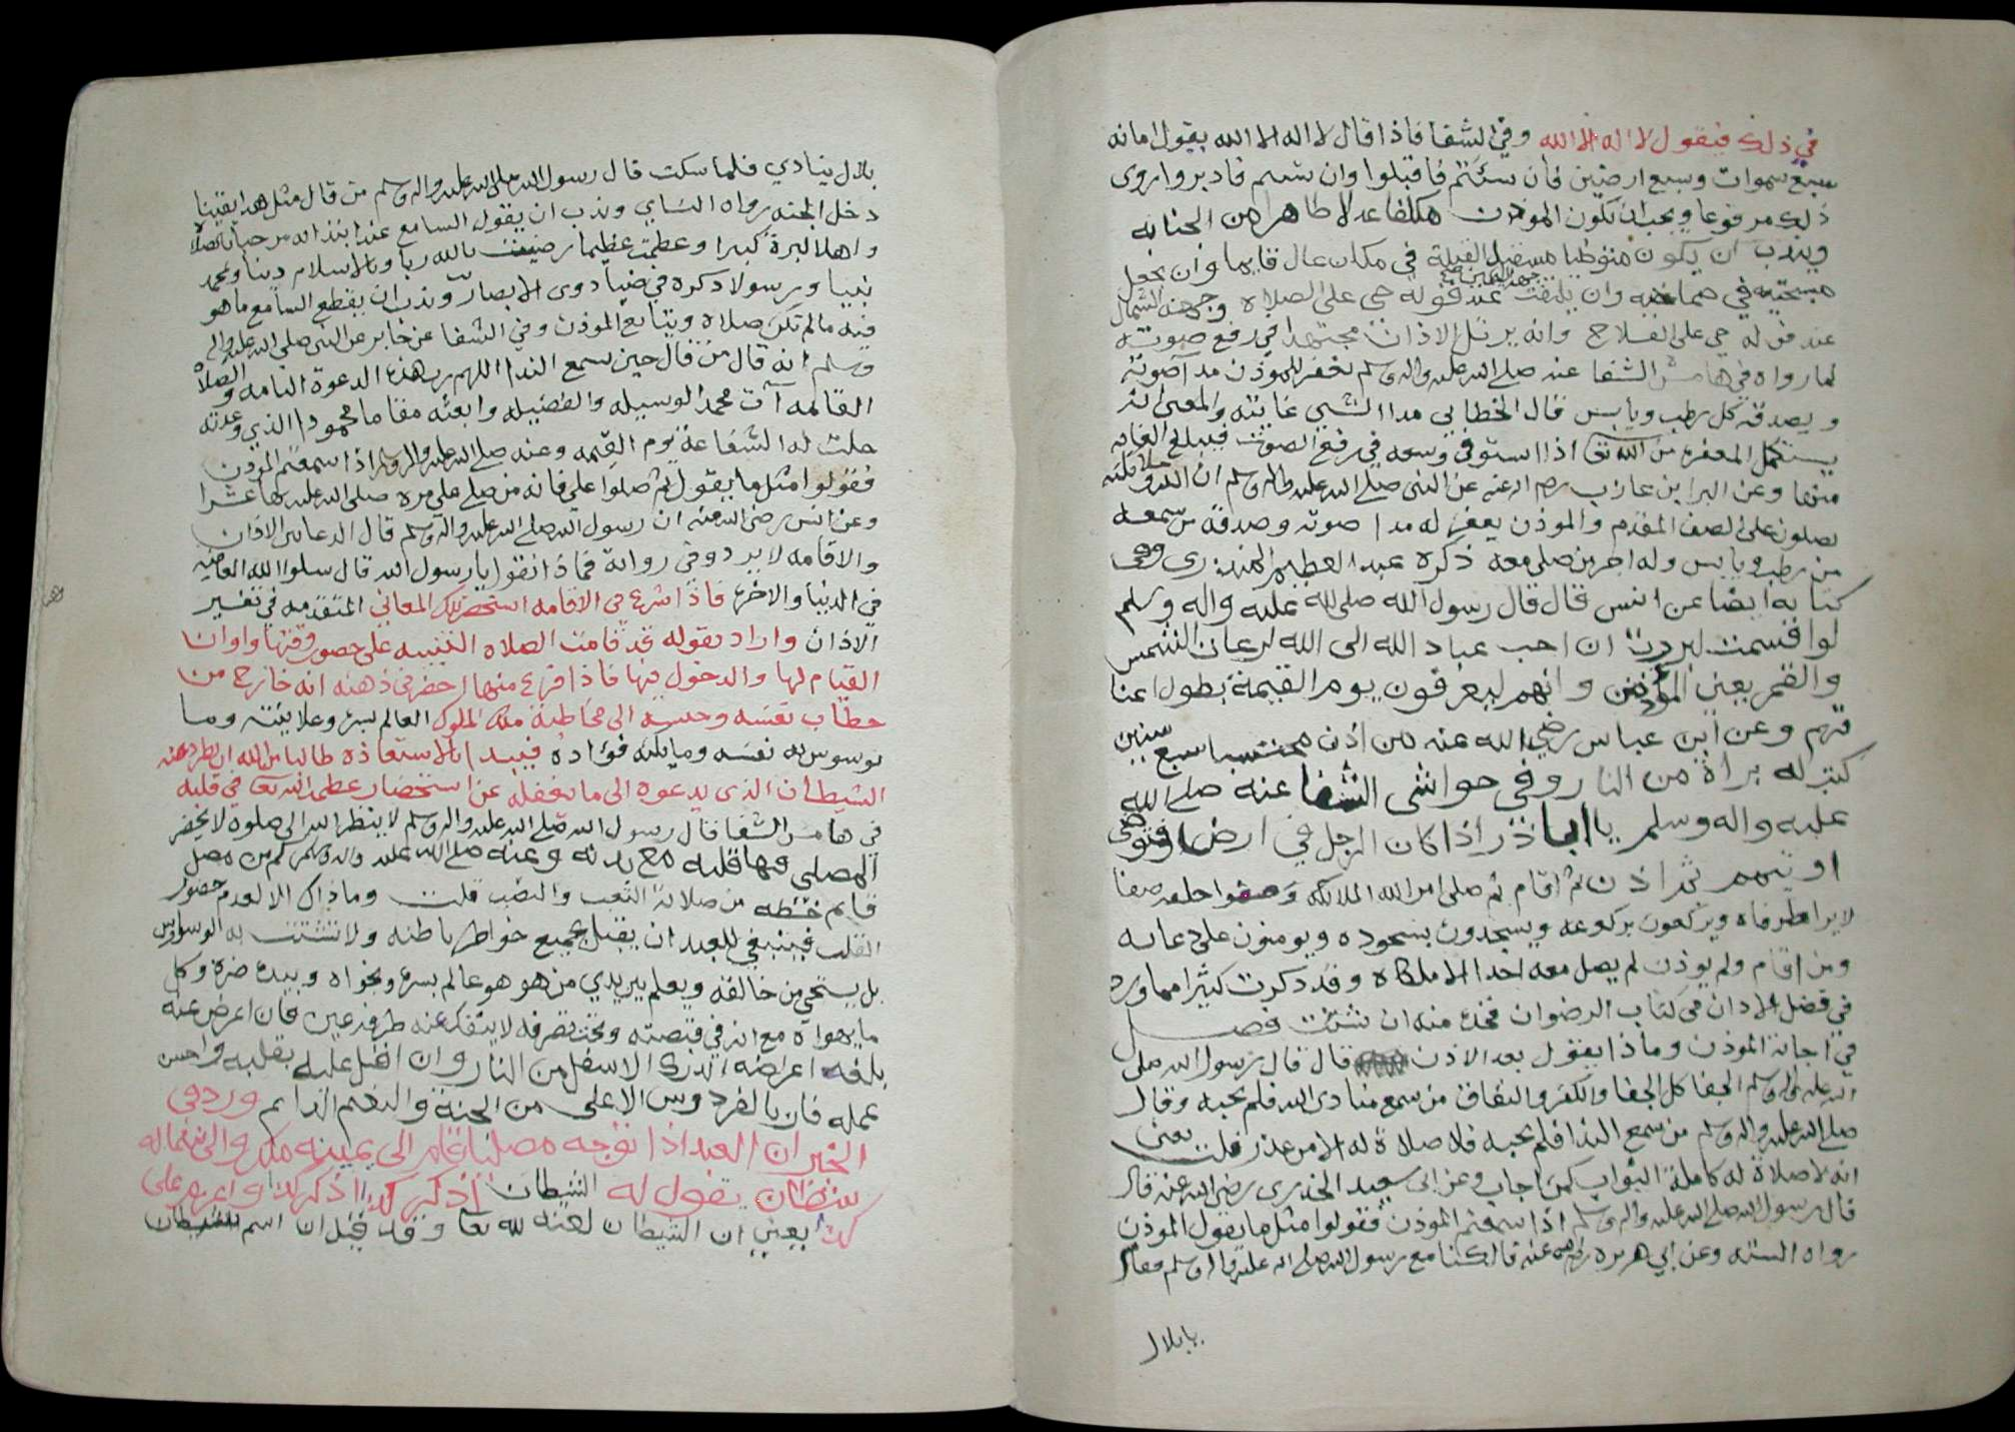 في ذلك فيقول لا اله الا الله وفي الشفا فاذا قال لا اله الا الله يقول امانه
سبع سموات وسبع ارضين فان سئتم فاقبلوا وان شيتم فادبروا روى
ذلك مرفوعا ويجب ان يكون الموذن مكلفا عدلا طاهرا من الجنابه
ويندب ان يكون متوظيا مستقبل القبلة في مكان عال قايما وان يجعل
مسبحتيه في صماخيه وان يلتفت عند قوله حي على الصلاه وجهة الشمال
جهة اليمين
عند قوله حي على الفلاح وانه يرتل الاذان مجتهدا في رفع صوته
لما رواه في هامش الشفا عنه صلى الله عليه واله وسلم يغفر للموذن مدا صوته
ويصدقه كل رطب ويابس قال الخطابي مدا الشي غايته والمعنى انه
يستكمل المغفرة من الله تعا اذا استوفى وسعه في رفع الصوت فيبلغ الغايه
منها وعن البرا بن عازب رضي الله عنه عن النبي صلى الله عليه واله وسلم ان الله وملائكته
يصلون على الصف المقدم والموذن يغفر له مدا صوته وصدقه من سمعه
من رطب ويابس وله اجر من صلى معه ذكره عبد العظيم المنذري وفي
كتابه ايضا عن انس قال قال رسول الله صلى الله عليه واله وسلم
لو اقسمت لبررت ان احب عباد الله الى الله لرعاة الشمس
والقمر يعني الموذنين وانهم ليعرفون يوم القيمة بطول اعنا
قهم وعن ابن عباس رضي الله عنه من اذن محتسبا سبع سنين
كتب له براة من النار وفي حواشي الشفا عنه صلى الله
عليه واله وسلم يا ابا ذر اذا كان الرجل في ارض فتوضى
او تيمم ثم اذن ثم اقام ثم صلى امر الله الملائكه وصفوا خلفه صفا
لا يرا طرفاه ويركعون بركوعه ويسجدون بسجوده ويومنون على دعائه
ومن اقام ولم يوذن لم يصل معه احدا الا ملكاه وقد ذكرت كثيرا مما ورد
في فضل الاذان في كتاب الرضوان فخذه منه ان شئت فصل
في اجابة الموذن وماذا يقول بعد الاذن قال قال رسول الله صلى
الله عليه واله وسلم الجفا كل الجفا والكفر والنفاق من سمع منادى الله فلم يجبه وقال
صلى الله عليه واله وسلم من سمع الندا فلم يجبه فلا صلاة له الا من عذر قلت يعني
انه لا صلاة له كاملة الثواب كمن اجاب وعن ابي سعيد الخدري رضي الله عنه قال
قال رسول الله صلى الله عليه واله وسلم اذا سمعتم الموذن فقولوا مثل ما يقول الموذن
رواه الستة وعن ابي هريره رضي الله عنه قال كنا مع رسول الله صلى الله عليه واله وسلم فقام
بلال
بلال ينادي فلما سكت قال رسول الله صلى الله عليه واله وسلم من قال مثل هذا يقينا
دخل الجنه رواه النساي وندب ان يقول السامع عند ابتدائه مرحبا بالصلاة
واهلا كبرة كبيرا وعظمت عظيما رضيت بالله ربا وبالاسلام دينا وبمحمد
نبيا ورسولا ذكره في ضيا ذوي الابصار وندب ان يقطع السامع ما هو
فيه ما لم تكن صلاة ويتابع الموذن وفي الشفا عن جابر عن النبي صلى الله عليه واله
وسلم انه قال من قال حين يسمع الندا اللهم رب هذه الدعوة التامه والصلاة
القائمه آت محمدا الوسيله والفضيله وابعثه مقاما محمودا الذي وعدته
حلت له الشفاعة يوم القيمه وعنه صلى الله عليه واله وسلم اذا سمعتم الموذن
فقولوا مثل ما يقول ثم صلوا علي فانه من صلى علي مره صلى الله عليه بها عشرا
وعن انس رضي الله عنه ان رسول الله صلى الله عليه واله وسلم قال الدعا بين الاذان
والاقامه لا يرد وفي رواية فماذا نقول يا رسول الله قال سلوا الله العافيه
في الدنيا والاخرة فاذا شرع في الاقامه استحضر تلك المعاني المتقدمه في تفسير
الاذان واراد بقوله قد قامت الصلاه التنبيه على حضور وقتها واوان
القيام لها والدخول فيها فاذا فرغ منها احضر في ذهنه انه خارج من
خطاب نفسه وجنسه الى مخاطبة ملك الملوك العالم بسره وعلانيته وما
توسوس به نفسه وما يكنه فؤاده فيبدا بالاستعاذه طالبا من الله ان يطرد عنه
الشيطان الذي يدعوه الى ما يغفله عن استحضار عظمة الله تعا في قلبه
في هامش الشفا قال رسول الله صلى الله عليه واله وسلم لا ينظر الله الى صلوة لا يحضر
المصلي فيها قلبه مع بدنه وعنه صلى الله عليه واله وسلم كم من مصل
قايم حظه من صلاته التعب والنصب قلت وما ذاك الا لعدم حضور
القلب فينبغي للعبد ان يقبل بجميع خواطر باطنه ولا تشتت به الوساوس
بل يستحي من خالقه ويعلم بين يدي من هو هو عالم بسره ونجواه وبيده ضره وكل
ما يهواه مع انه في قبضته وتحت تصرفه لا ينفك عنه طرفة عين فان اعرض عنه
بلغه اعراضه الدرك الاسفل من النار وان اقبل عليه بقلبه واحسن
عمله فاز بالفردوس الاعلى من الجنة والنعيم الدايم وورد في
الخبر ان العبد اذا توجه مصليا قام الى يمينه ملك والى شماله
شيطان يقول له الشيطان اذكر كذا اذكر كذا واعزم على
كذا يعني ان الشيطان لعنه لله تعا وقد قيل ان اسم الشيطان